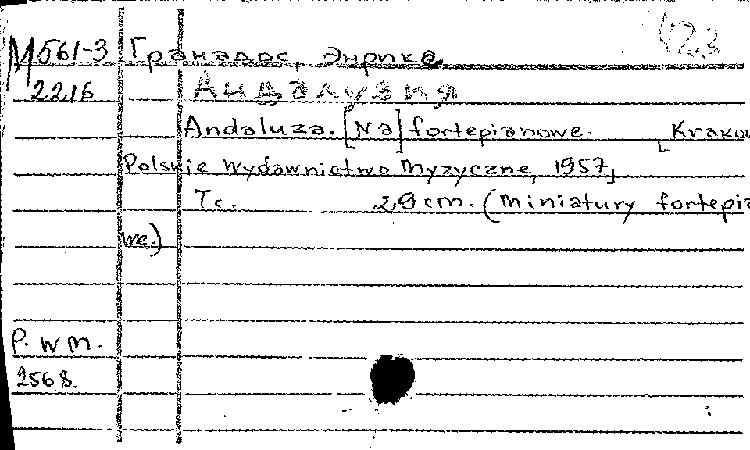 42.3
М561-3 Гранадос, Энрике
2216 Андалузия
Andaluza. [Na] fortepianowe. [Krakow
Polskie Wydawnictwo Myzyczne, 1957]
Tc. 20 cm. (Miniatury fortepia
we.)
P. W M.
2568.